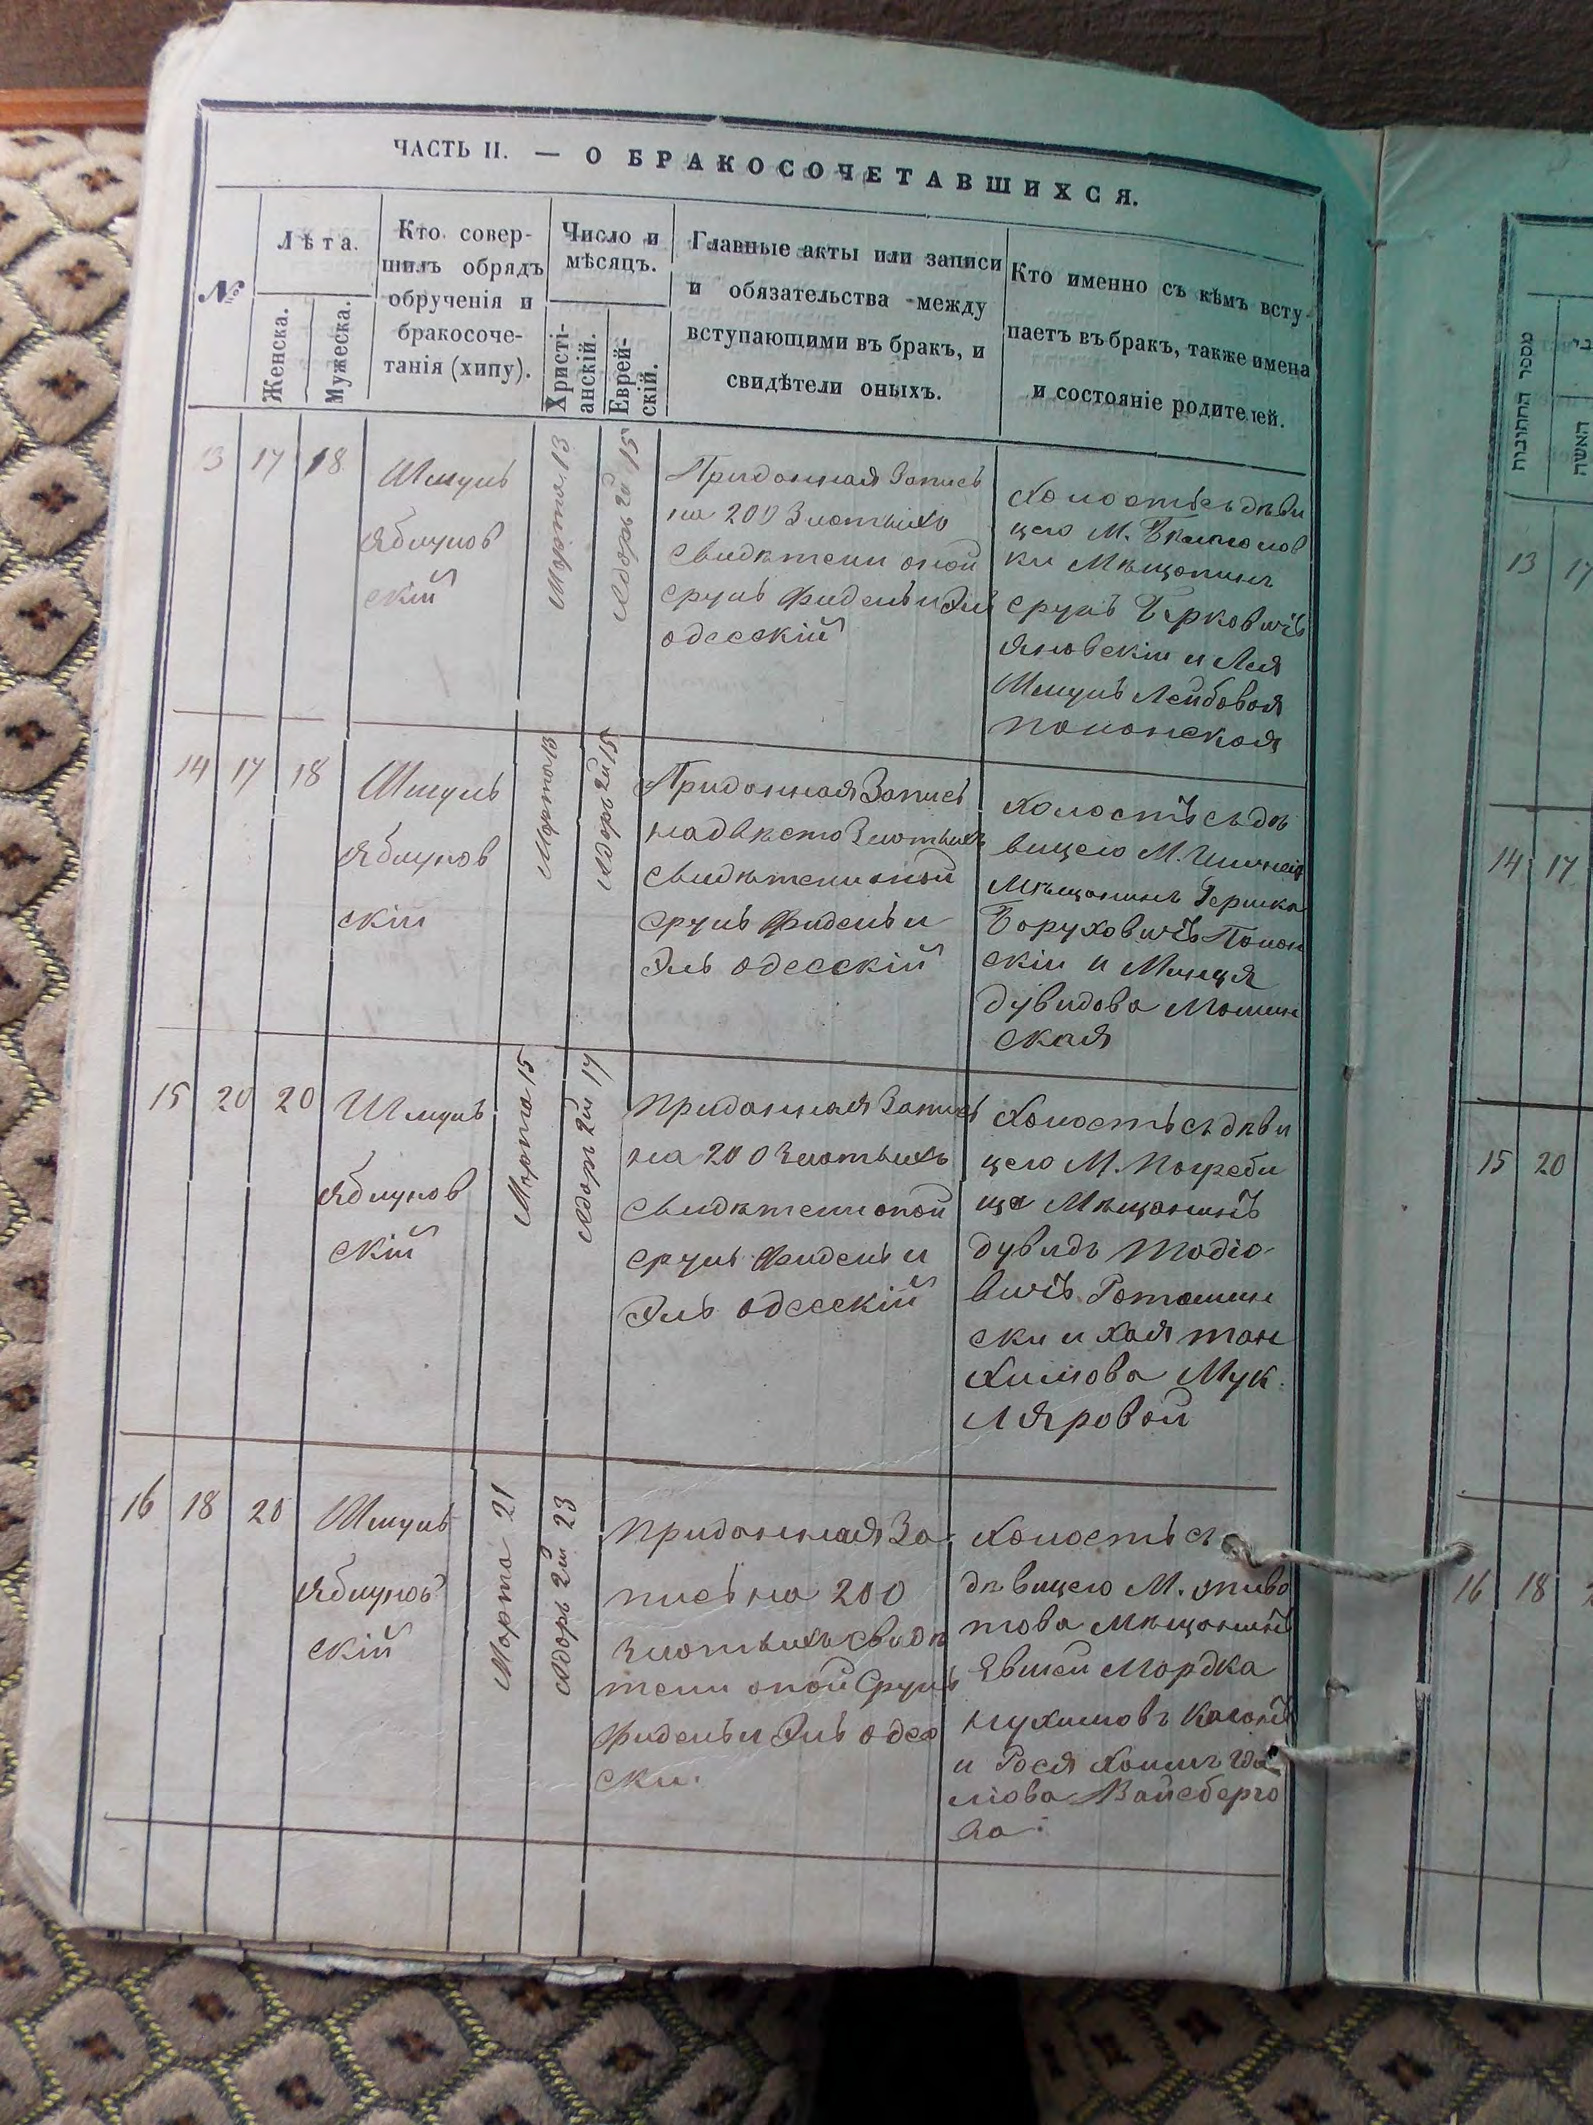 ЧАСТЬ II. — О БРАКОСОЧЕТАВШИХСЯ.
№
Лѣта.
Женска.
Мужеска.
Кто совер-
шилъ обрядъ
обрученія и
бракосоче-
танія (хипу).
Число и
мѣсяцъ.
Христі-
анскій.
Еврей-
скій.
Главные акты или записи
и обязательства между
вступающими въ бракъ, и
свидѣтели оныхъ.
Кто именно съ кѣмъ всту-
паетъ въ бракъ, также имена
и состояніе родителей.
13
17
18
Шмуль
Яблунов
скій
Марта 13
Адоръ 2й 15
Приданная Запись
на 200 Злотыхъ
свидѣтели оной
Сруль Фидель и Эль
одесскій
Холостъ съ дѣви
цею М.
ки Мѣщанинъ
Сруль Берковичъ
Яновскій и Лея
Шмуль Лейбовая
Полонская
14
17
18
Шмуль
Яблунов
скій
Марта 13
Адоръ 2й 15
Приданная Запись
на двѣсто Злотыхъ
свидѣтели оной
Сруль Фидель и
Эль одесскій
Холостъ съ дѣ
вицею М.
Мѣщанинъ Гершко
Боруховичъ Полон
скій и
Дувидова
ская
15
20
20
Шмуль
Яблунов
скій
Марта 15
Адоръ 2й 17
Приданная Запись
на 200 Злотыхъ
свидѣтели оной
Сруль Фидель и
Эль одесскій
Холостъ съ дѣви
цею М. Погреби
ща Мѣщанинъ
Дувидъ
вичъ
ски и Хая Тан
химова Мук
ляровой
16
18
20
Шмуль
Яблунов
скій
Марта 21
Адоръ 2й 23
Приданная За
пись на 200
Злотыхъ свидѣ
тели оной Сруль
Фидель и Эль одес
ски.
Холостъ съ
дѣвицею М. Живо
това Мѣщанинъ
Мордка
Нухимовъ
и Рося
Вайсберго
ва.
מספר החתונות
האשה
13
17
14
17
15
20
16
18